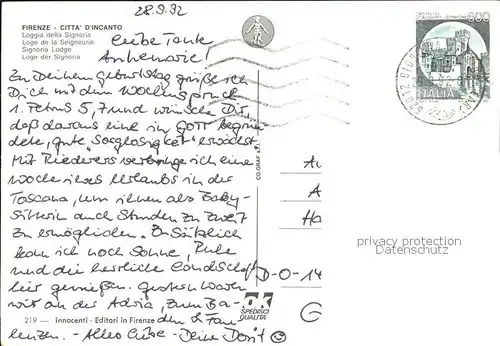 28.9.92
FIRENZE - CITTA' D'INCANTO
Loggia della Signoria
Loge de la Seigneurie
Signoria Lodge
Loge der Signoria
Liebe Tante
Annemarie!
Zu Deinem Geburtstag grüße ich
Dich mit dem Wochenspruch
1. Petrus 5,7 und wünsche Dir,
daß daraus eine in GOTT begrün
dete, gute "Sorglosigkeit" erwächst.
Mit Riederers verbringe ich eine
Woche ihres Urlaubs in der
Toscana, um ihnen als Baby-
sitterin auch Stunden zu zweit
zu ermöglichen. Zusätzlich
kann ich noch Sonne, Ruhe
und die herrliche Landschaft
hier genießen. Gestern waren
wir an der Adria, zum Ba-
den & Fau-
lenzen. - Alles Liebe - Deine Dorit
219 — Innocenti - Editori in Firenze
CO.GRAF s.r.l.
ok
SPEDISCI
QUALITÀ
600
ITALIA
D-O-14
G
privacy protection
Datenschutz